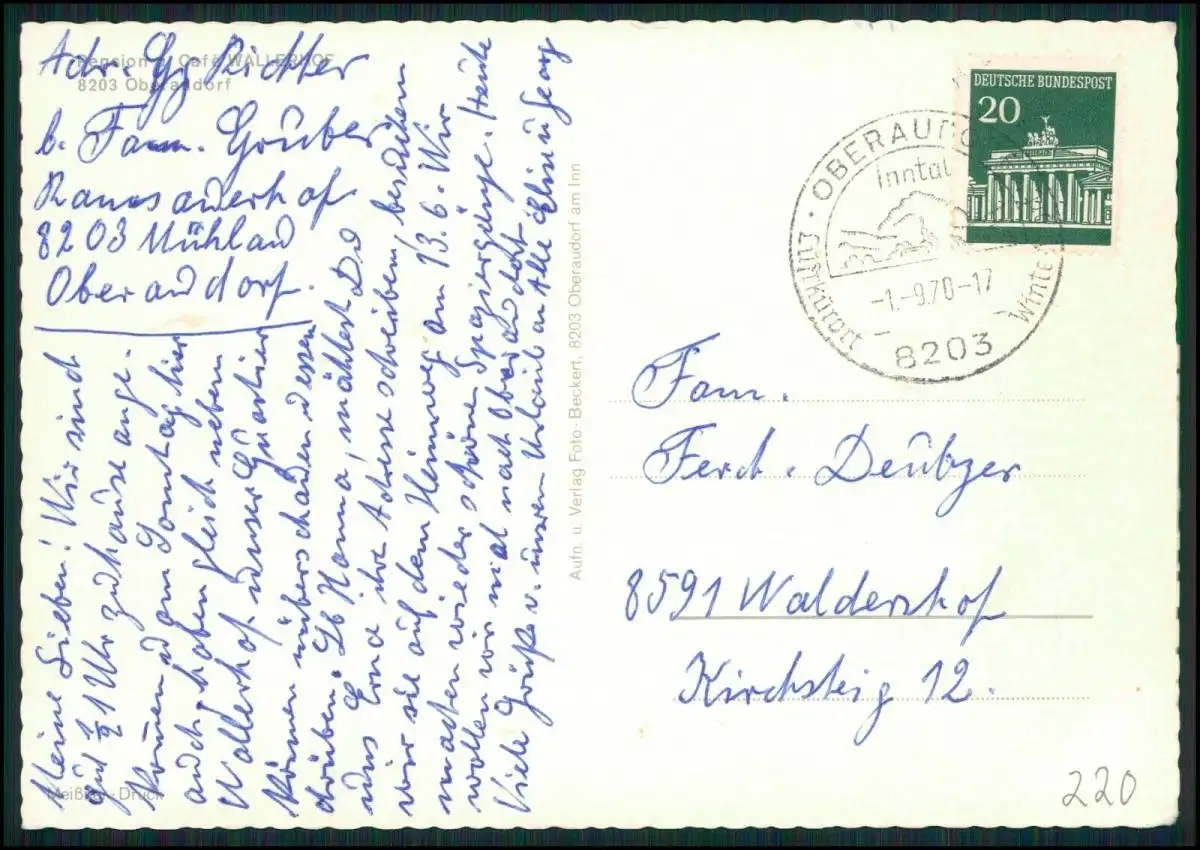 Pension - Café WALLERHOF
8203 Oberaudorf
Adr. Gg Richter
b. Fam. Gruber
Ramsauerhof
8203 Mühlau
Oberaudorf.
Meine Lieben! Wir sind
auf ½1 Uhr zuhause ange-
kommen am Sonntag hier
auch, haben gleich neben
Wallerhof unser Quartier
können rüberschauen dessen
drüben. Lb Hanna, möchtest Du
uns Erna ihre Adresse schreiben, besuchen
wir sie auf dem Heimweg am 13.6. Wir
machen wieder schöne Spaziergänge. Heute
wollen wir mal nach Oberaudorf
Viele Grüße v. unserem Urlaub an Alle Elis u. Georg
Meißner-Druck
Aufn. u. Verlag Foto-Beckert, 8203 Oberaudorf am Inn
DEUTSCHE BUNDESPOST
20
OBERAUDO
Inntal
Luftkurort
Winte
-1.-9.70-17
8203
Fam.
Ferd. Deubzer
8591 Waldershof
Kirchsteig 12.
220